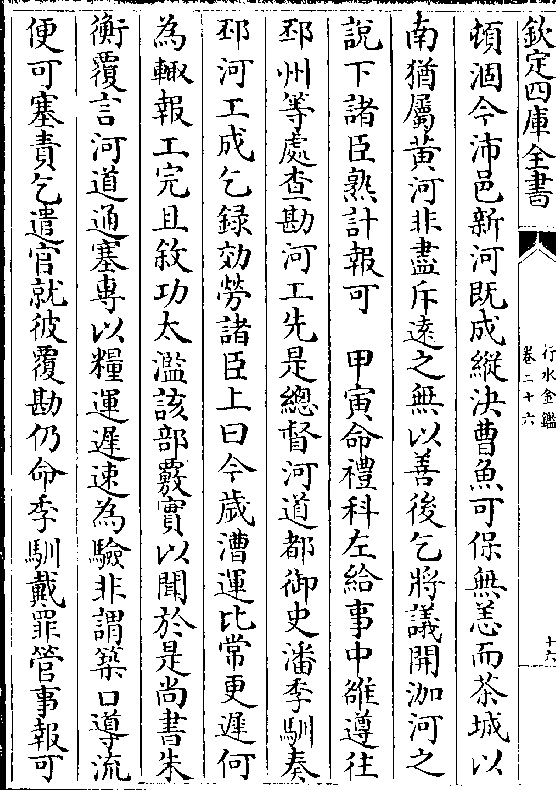 欽定四庫全書
行水金鑑
卷二十六
十六
頓涸今沛邑新河既成縱決曹魚可保無恙而茶城以
南猶屬黄河非盡斥遠之無以善後乞將議開泇河之
說下諸臣熟計報可　甲寅命禮科左給事中雒遵往
邳州等處查勘河工先是總督河道都御史潘季馴奏
邳河工成乞録効勞諸臣上曰今歲漕運比常更遲何
為輙報工完且敘功太濫該部覈實以聞於是尚書朱
衡覆言河道通塞專以糧運遲速為驗非謂築口導流
便可塞責乞遣官就彼覆勘仍命季馴戴罪管事報可